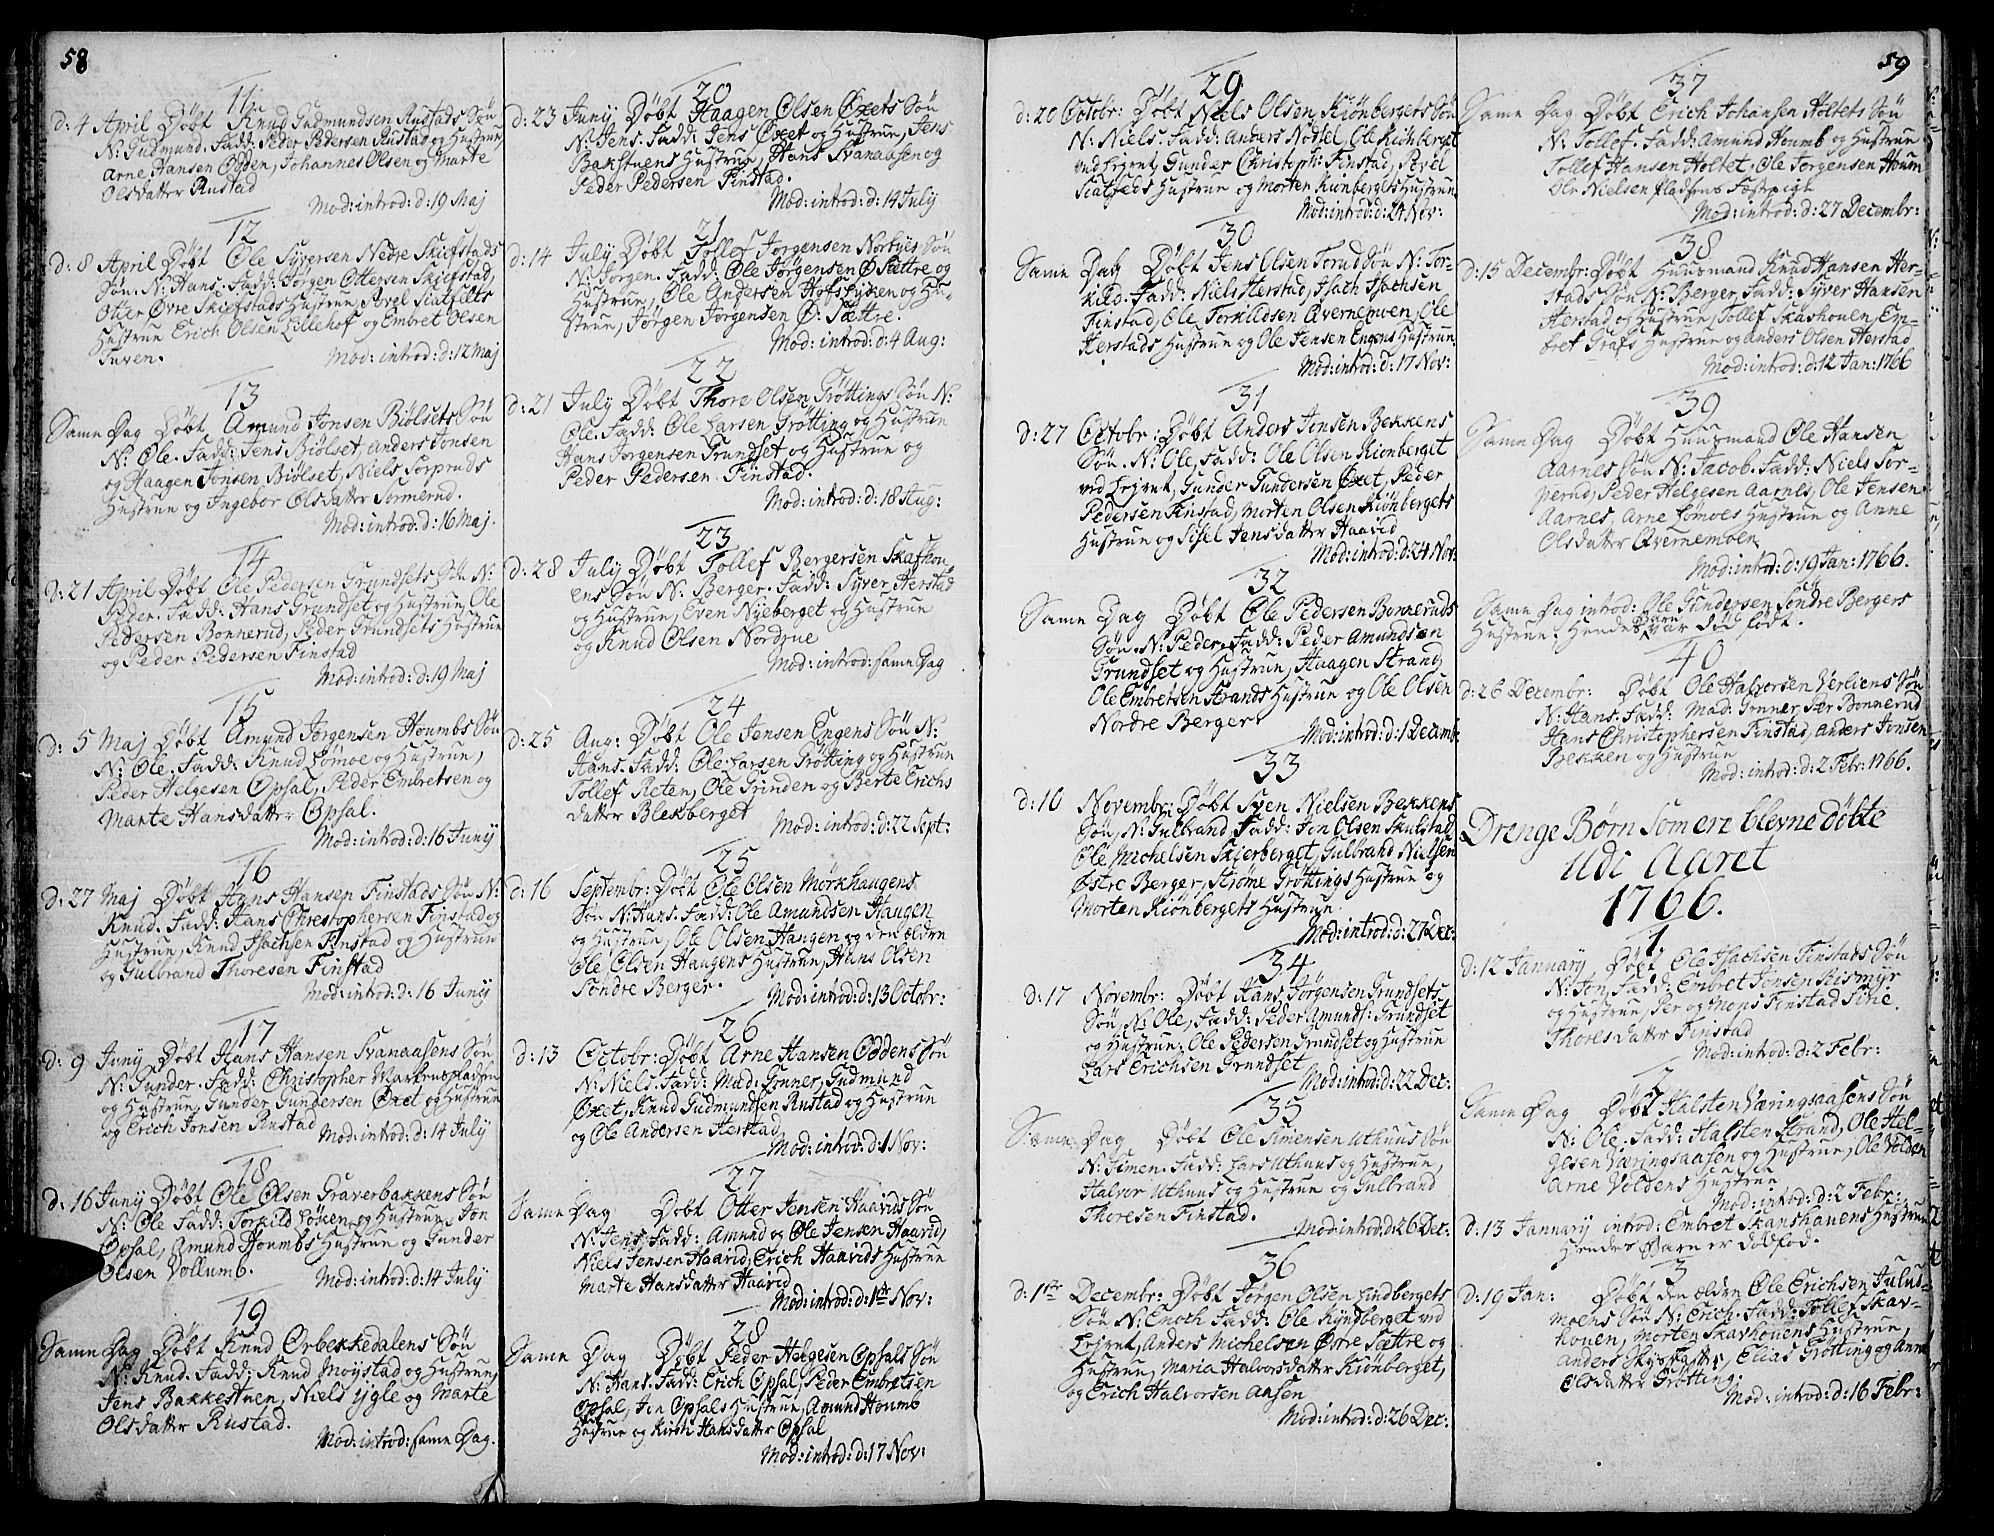 58
11.
d: 4 April Döbt Knud Gudmundsen Rustads Sön
N: Gudmund. Fadd: Peder Pedersen Rustad og Hustrue,
Arne Hansen Odden, Johannes Olsen og Marte
Olsdatter Rustad
Mod: introd: d: 19 Maj
12
d: 8 April Döbt Ole Syversen Nedre Skiefstads
Sön. N: Hans. Fadd: Jörgen Ottersen Skiefstad,
Otter Övre Skiefstads Hustrue, Axel Siatfelts
Hustrue Erich Olsen Lillehof og Embret Olsen
Tuven.
Mod: introd: d: 12 Maj
13
Same Dag Döbt Amund Jonsen Biölsets Sön
N: Ole. Fadd: Jens Biölset, Anders Jonsen
og Haagen Jonsen Biölset, Niels Torpruds
Hustrue og Ingebor Olsdatter Sormerud.
Mod: introd: d: 16 Maj.
14
d: 21 April Döbt Ole Pedersen Grundsets Sön N:
Peder. Fadd: Hans Grundset og Hustrue, Ole
Pedersen Bonnerud, Peder Grundsets Hustrue
og Peder Pedersen Finstad
Mod: introd: d: 19 Maj
15
d: 5 Maj Döbt Amund Jörgensen Houmbs Sön
N: Ole. Fadd: Knud Lömoe og Hustrue,
Peder Helgesen Opsal, Peder Embretsen og
Marte Hansdatter Opsal.
Mod: introd: d: 16 Junij
16
d: 27 Maj Döbt Hans Hansen Finstads Sön N:
Knud. Fadd: Hans Christophersen Finstad og
Hustrue, Knud Isachsen Finstad og Hustrue
og Gulbrand Thoresen Finstad
Mod: introd: d: 16 Junij
17
d: 9 Junij Döbt Hans Hansen Svanaasens Sön
N: Gunder. Fadd: Christopher
og Hustrue, Gunder Gundersen Öxet og Hustrue
og Erich Jonsen Rustad
Mod: introd: d: 14 July
18
d: 16 Junij Döbt Ole Olsen Graverbakkens Sön
N: Ole Fadd: Torkild Löken og Hustrue, Jon
Opsal, Amund Houmbs Hustrue og Gunder
Olsen Vollumb.
Mod: introd: d: 14 July
19
Same Dag Döbt Knud Orbekkedalens Sön
N: Knud. Fadd: Knud Möystad og Hustrue,
Jens Bakkestuen, Niels Ygle og Marte
Olsdatter Rustad.
Mod: introd: same Dag.
20
d: 23 Junij Döbt Haagen Olsen Öxets Sön
N: Jens. Fadd: Jens Öxet og Hustrue, Jens
Bakstuens Hustrue, Hans Svanaasen og
Peder Pedersen Finstad.
Mod: introd: d: 14 July
21
d: 14 July Döbt Tollef Jorgensen Norbyes Sön
N: Jörgen. Fadd: Ole Jörgensen Ö. Sættre og
Hustrue, Ole Andersen Hofslyken og Hu-
strue, Jörgen Jörgensen Ö: Sættre.
Mod: introd: d: 4 Aug:
22
d: 21 July Döbt Thore Olsen Gröttings Sön N:
Ole. Fadd: Ole Larsen Grötting og Hustrue
Hans Jorgensen Grundset og Hustrue og
Peder Pedersen Finstad.
Mod: introd: d: 18 Aug:
23
d: 28 July Döbt Tollef Bergersen Skafhou-
ens Sön N: Berger. Fadd: Syver Herstad
og Hustrue, Even Nyeberget og Hustrue
og Knud Olsen Nordgue
Mod: introd: same Dag
24
d: 25 Aug: Döbt Ole Jensen Engens Sön N:
Hans. Fadd: Ole Larsen Grötting og Hustrue
Tollef Reten, Ole Grinden og Berte Erichs
datter Blekberget
Mod: introd: d: 22 Sept:
25
d: 16 Septembr: Döbt Ole Olsen Mörkhaugens
Sön N: Hans. Fadd: Ole Amundsen Haugen
og Hustrue, Ole Olsen Haugen og den ældre
Ole Olsen Haugens Hustrue, Hans Olsen
Söndre Berger.
Mod: introd: d: 13 Octobr:
26
d: 13 Octobr: Döbt Arne Hansen Oddens Sön
N: Niels. Fadd: Mad: Gonner, Gudmund
Öxet, Knud Gudmundsen Rustad og Hustrue
og Ole Andersen Herstad
Mod: introd: d: 1 Nov:
27
Same Dag Döbt Otter Jensen Haavids Sön
N: Jens. Fadd: Amund og Ole Jensen Haavid,
Niels Jensen Haavid, Erich Haavids Hustrue
Marte Hansdatter Haavid
Mod: introd: d: 1ste Nov:
28
Same Dag Döbt Peder Helgesen Opsals Sön
N: Hans. Fadd: Erich Opsal, Peder Embretsen
Opsal, Jon Opsals Hustrue, Amund Houmb
Hustrue og Kirsti Hansdatter Opsal
Mod: introd: d: 17 Nov:
29
d: 20 Octobr: Döbt Niels Olsen Kiönbergets Sön
N: Niels. Fadd: Anders Nodtel, Ole Kiönberget
ved Lejret, Gunder Christoph: Finstad, Axel
Siatfelds Hustrue og Morten Kiönbergets Hustrue.
Mod: introd: d: 24 Nov:
30
Same Dag Döbt Jens Olsen Torud Sön N: Tor-
kild. Fadd: Niels Herstad, Isach Isachsen
Finstad, Ole Torkildsen Qvernemoen, Ole
Herstads Hustrue og Ole Jensen Engens Hustrue.
Mod: introd: d: 17 Nov:
31
d: 27 Octobr: Döbt Anders Jonsen Bekkens
Sön. N: Ole, Fadd: Ole Olsen Kiönberget
ved Lejret, Gunder Gundersen Öxet, Peder
Pedersen Finstad, Morten Olsen Kiönbergets
Hustrue og Sisel Jensdatter Haavid
Mod: introd: d: 24 Nov
32
Same Dag Döbt Ole Pedersen Bonneruds
Sön. N: Peder. Fadd: Peder Amundsen
Grundset og Hustrue, Haagen Strand
Ole Embretsen Strands Hustrue og Ole Olsen
Nordre Berger
Mod: introd: d: 1 Decemb:
33
d: 10 Novembr: Döbt Sven Nielsen Bekkens
Sön, N: Gulbrand, Fadd: Jon Olsen Skulstad,
Ole Michelsen Skierberget, Gulbrand Nielsen
Östre Berger, Ströms Gröttings Hustrue og
Morten Kiönbergets Hustrue
Mod: introd: d: 27 Dec:
34
d: 17 Novembr: Döbt Hans Jörgensen Grundsets
Sön, N: Ole, Fadd: Peder Amunds: Grundset
og Hustrue. Ole Pedersen Grundset og Hustrue
Lars Erichsen Grundset
Mod: introd: d: 22 Dec:
35
Same Dag Döbt Ole Simensen Uthuus Sön
N: Simen. Fadd: Lars Uthuus og Hustrue,
Halvor Uthuus og Hustrue og Gulbrand
Thoresen Finstad.
Mod: introd: d: 26 Dec:
36
d: 1ste Decembr: Döbt Jörgen Olsen Lindbergets
Sön N: Enoch Fadd: Ole Kyndberget ved
Lejret, Anders Michelsen Övre Sættre og
Hustrue, Maria Halvorsdatter Kiönberget,
og Erich Halvorsen Aasen
Mod: introd: d: 26 Dec:
59
37
Same Dag Döbt Erich Johansen Holtets Sön
N: Tollef. Fadd: Amund Houmb og Hustrue
Tollef Hansen Holtet, Ole Jorgensen Houm
Ole Nielsen Pladsens Fæstepige
Mod: introd: d: 27 Decembr:
38
d: 15 Decembr: Döbt Huusmand Knud Hansen Her-
stads Sön N: Berger, Fadd: Syver Hansen
Herstad og Hustrue, Tollef Skashouen, Em-
bret Grafs Hustrue og Anders Olsen Herstad
Mod: introd: d: 12 Jan: 1766
39
Same Dag Döbt Huusmand Ole Hansen
Aarnes Sön N: Jacob. Fadd: Niels Tor-
perud, Peder Helgesen Aarnes, Ole Jensen
Aarnes, Arne Lömoes Hustrue og Anne
Olsdatter Qvernemoen
Mod: introd: d: 19 Jan: 1766.
Same Dag introd: Ole Gundersen Söndre Bergers
Hustrue; Hendes Barn var död födt.
40
d: 26 Decembr: Döbt Ole Halvorsen Verliens Sön
N: Hans. Fadd: Mad: Gonner, Per Bonnerud
Hans Christophersen Finstad, Anders Jonsen
Bekken og Hustrue
Mod: introd: d: 2 Febr: 1766.
Drenge Börn som ere blevne döbte
udi Aaret
1766.
1.
d: 12 January Döbt Ole Isachsen Finstads Sön
N: Jon, Fadd: Embret Jonsen Rismyr
og Hustrue, Per og Mons Finstad
Thoresdatter Finstad
Mod: introd: d: 2 Febr:
2
Same Dag Döbt Halsten Væringsaasens Sön
N: Ole. Fadd: Halsten Strand, Ole Hel-
gesen Væringsaasen og Hustrue, Ole Volden
Arne Voldens Hustrue
Mod: introd: d: 2 Febr:
d: 13 January introd: Embret Skanshauens Hustrue
Hendes Barn er dödföd.
3
d: 19 Jan: Döbt den ældre Ole Erichsen Julus-
moens Sön N: Erich. Fadd: Tollef Skas-
houen, Morten Skashouens Hustrue,
Anders Skybsætter, Elias Grötting og Anne
Olsdatter Grötting.
Mod: introd: d: 16 Febr: